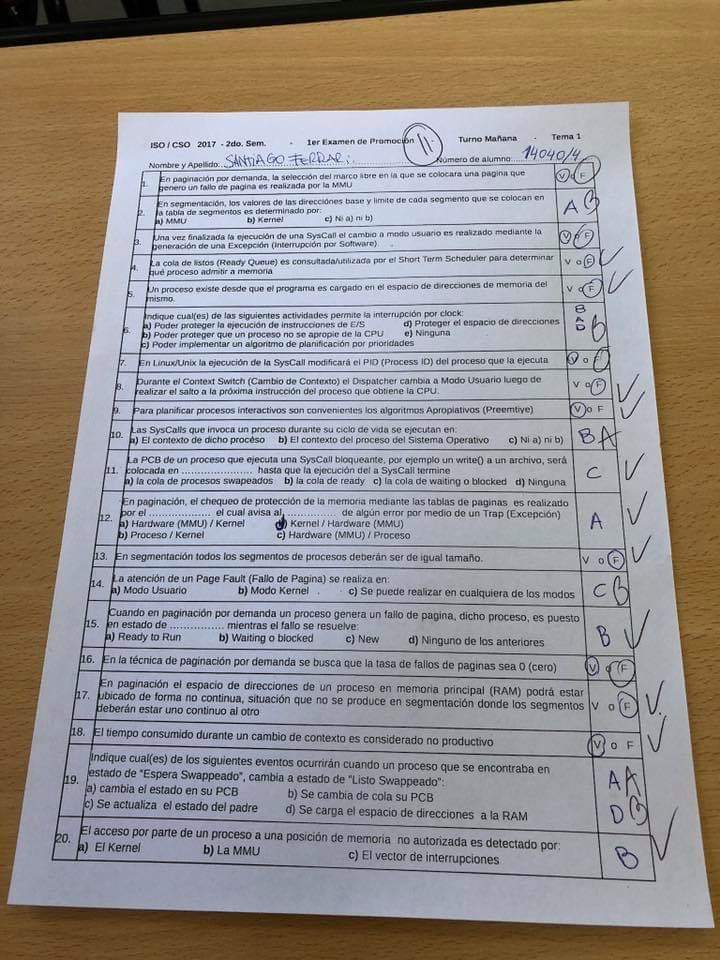 ISO / CSO 2017 - 2do. Sem. - 1er Examen de Promoción 11 Turno Mañana - Tema 1
Nombre y Apellido: SANTIAGO FERRARI Número de alumno: 14040/4
1. En paginación por demanda, la selección del marco libre en la que se colocara una pagina que V o F
genero un fallo de pagina es realizada por la MMU
2. En segmentación, los valores de las direcciónes base y limite de cada segmento que se colocan en A B
la tabla de segmentos es determinado por:
a) MMU b) Kernel c) Ni a) ni b)
3. Una vez finalizada la ejecución de una SysCall el cambio a modo usuario es realizado mediante la V o F
generación de una Excepción (Interrupción por Software)
4. La cola de listos (Ready Queue) es consultada/utilizada por el Short Term Scheduler para determinar V o F
qué proceso admitir a memoria
5. Un proceso existe desde que el programa es cargado en el espacio de direcciones de memoria del V o F
mismo.
6. Indique cual(es) de las siguientes actividades permite la interrupción por clock: B
a) Poder proteger la ejecución de instrucciones de E/S d) Proteger el espacio de direcciones A B
b) Poder proteger que un proceso no se apropie de la CPU e) Ninguna D
c) Poder implementar un algoritmo de planificación por prioridades
7. En Linux/Unix la ejecución de la SysCall modificará el PID (Process ID) del proceso que la ejecuta V o F
8. Durante el Context Switch (Cambio de Contexto) el Dispatcher cambia a Modo Usuario luego de V o F
realizar el salto a la próxima instrucción del proceso que obtiene la CPU.
9. Para planificar procesos interactivos son convenientes los algoritmos Apropiativos (Preemtive) V o F
10. Las SysCalls que invoca un proceso durante su ciclo de vida se ejecutan en: B A
a) El contexto de dicho procéso b) El contexto del proceso del Sistema Operativo c) Ni a) ni b)
11. La PCB de un proceso que ejecuta una SysCall bloqueante, por ejemplo un write() a un archivo, será C
colocada en ...................... hasta que la ejecución del a SysCall termine
a) la cola de procesos swapeados b) la cola de ready c) la cola de waiting o blocked d) Ninguna
12. En paginación, el chequeo de protección de la memoria mediante las tablas de paginas es realizado A
por el ................... el cual avisa al ................ de algún error por medio de un Trap (Excepción)
a) Hardware (MMU) / Kernel Kernel / Hardware (MMU)
b) Proceso / Kernel c) Hardware (MMU) / Proceso
13. En segmentación todos los segmentos de procesos deberán ser de igual tamaño. V o F
14. La atención de un Page Fault (Fallo de Pagina) se realiza en: C B
a) Modo Usuario b) Modo Kernel c) Se puede realizar en cualquiera de los modos
15. Cuando en paginación por demanda un proceso genera un fallo de pagina, dicho proceso, es puesto B
en estado de ................ mientras el fallo se resuelve:
a) Ready to Run b) Waiting o blocked c) New d) Ninguno de los anteriores
16. En la técnica de paginación por demanda se busca que la tasa de fallos de paginas sea 0 (cero) V o F
17. En paginación el espacio de direcciones de un proceso en memoria principal (RAM) podrá estar V o F
ubicado de forma no continua, situación que no se produce en segmentación donde los segmentos
deberán estar uno continuo al otro
18. El tiempo consumido durante un cambio de contexto es considerado no productivo V o F
19. Indique cual(es) de los siguientes eventos ocurrirán cuando un proceso que se encontraba en A A
estado de "Espera Swappeado", cambia a estado de "Listo Swappeado": D B
a) cambia el estado en su PCB b) Se cambia de cola su PCB
c) Se actualiza el estado del padre d) Se carga el espacio de direcciones a la RAM
20. El acceso por parte de un proceso a una posición de memoria no autorizada es detectado por: B
a) El Kernel b) La MMU c) El vector de interrupciones